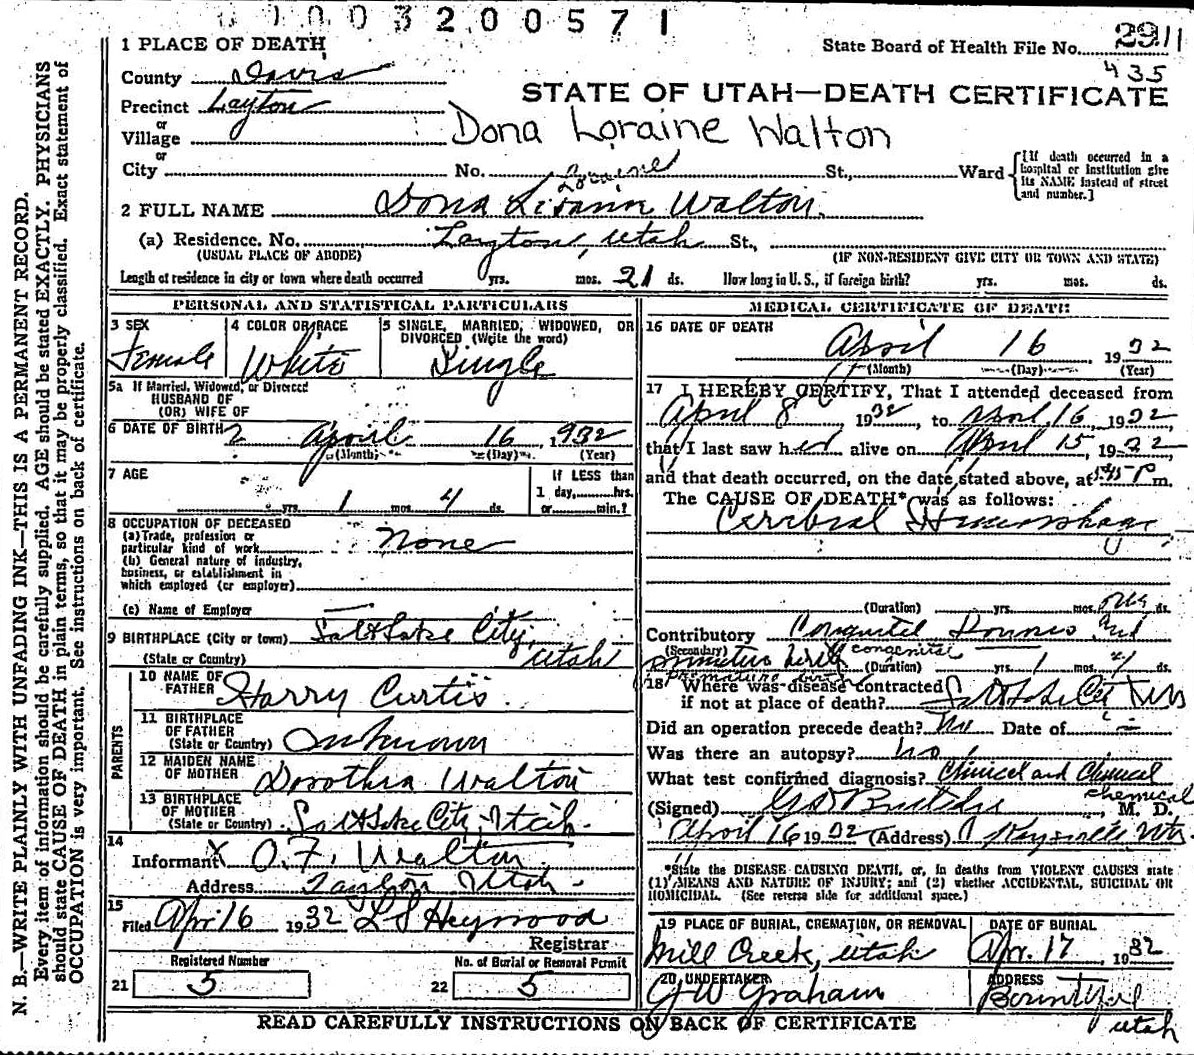 0 1003200571
State Board of Health File No. 2911
435
1 PLACE OF DEATH
County Davis
STATE OF UTAH—DEATH CERTIFICATE
Precinct Layton
or
Village
Dona Loraine Walton
or
City No. St., Ward
[If death occurred in a hospital or institution give its NAME instead of street and number.]
Loraine
2 FULL NAME Dona Walton
(a) Residence. No. Layton, Utah St.,
(USUAL PLACE OF ABODE) (IF NON-RESIDENT GIVE CITY OR TOWN AND STATE)
Length of residence in city or town where death occurred yrs. mos. 21 ds. How long in U. S., if foreign birth? yrs. mos. ds.
PERSONAL AND STATISTICAL PARTICULARS
3 SEX
Female
4 COLOR OR RACE
White
5 SINGLE, MARRIED, WIDOWED, OR DIVORCED (Write the word)
Single
5a If Married, Widowed, or Divorced
HUSBAND OF
(OR) WIFE OF
6 DATE OF BIRTH April 16 1932
(Month) (Day) (Year)
7 AGE
yrs. 1 mos. 4 ds.
If LESS than
1 day, hrs.
or min.?
8 OCCUPATION OF DECEASED
(a) Trade, profession or
particular kind of work None
(b) General nature of industry,
business, or establishment in
which employed (or employer)
(c) Name of Employer
9 BIRTHPLACE (City or town) Salt Lake City,
(State or Country) Utah
PARENTS
10 NAME OF FATHER Harry Curtis
11 BIRTHPLACE OF FATHER
(State or Country) Unknown
12 MAIDEN NAME OF MOTHER Dorothea Walton
13 BIRTHPLACE OF MOTHER
(State or Country) Salt Lake City, Utah
14
Informant X O. F. Walton
Address Layton Utah
15
Filed Apr 16 1932 L S Heywood
Registrar
Registered Number
21 5
No. of Burial or Removal Permit
22 5
MEDICAL CERTIFICATE OF DEATH
16 DATE OF DEATH
April 16, 1932
(Month) (Day) (Year)
17 I HEREBY CERTIFY, That I attended deceased from
April 8 1932, to April 16, 1932
that I last saw her alive on April 15, 1932
and that death occurred, on the date stated above, at m.
The CAUSE OF DEATH* was as follows:
Cerebral Hemorrhage
(Duration) yrs. mos. ds.
Contributory
(Secondary)
congenital
premature birth (Duration) yrs. 1 mos. ds.
premature birth
18 Where was disease contracted
if not at place of death? Salt Lake City
Did an operation precede death? No Date of
Was there an autopsy? No
What test confirmed diagnosis? Clinical and Chemical
chemical
(Signed) M. D.
April 16 1932 (Address) Kaysville Utah
*State the DISEASE CAUSING DEATH, or, in deaths from VIOLENT CAUSES state
(1) MEANS AND NATURE OF INJURY; and (2) whether ACCIDENTAL, SUICIDAL OR
HOMICIDAL. (See reverse side for additional space.)
19 PLACE OF BURIAL, CREMATION, OR REMOVAL
Mill Creek, Utah
DATE OF BURIAL
Apr. 17, 1932
20 UNDERTAKER
J W Graham
ADDRESS
Bountiful
Utah
READ CAREFULLY INSTRUCTIONS ON BACK OF CERTIFICATE
N. B.—WRITE PLAINLY WITH UNFADING INK—THIS IS A PERMANENT RECORD.
Every item of information should be carefully supplied. AGE should be stated EXACTLY. PHYSICIANS
should state CAUSE OF DEATH in plain terms, so that it may be properly classified. Exact statement of
OCCUPATION is very important. See instructions on back of certificate.